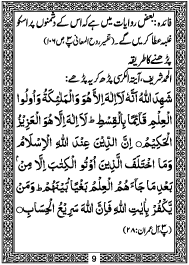 فائدہ: بعض روایات میں ہے کہ اس کے دشمنوں پر اسکو
غلبہ عطا کریں گے۔ (تفسیر روح المعانی ج ص ۱۰۶)
پڑھنے کا طریقہ
الحمد شریف، آیۃ الکرسی پڑھ کر یہ پڑھے:
شَهِدَ اللّٰهُ اَنَّهٗ لَاۤ اِلٰهَ اِلَّا هُوَ وَالْمَلٰٓئِكَةُ وَاُولُوا
الْعِلْمِ قَآئِمًۢا بِالْقِسْطِ ؕ لَاۤ اِلٰهَ اِلَّا هُوَ الْعَزِیْزُ
الْحَكِیْمُ ۝ اِنَّ الدِّیْنَ عِنْدَ اللّٰهِ الْاِسْلَامُ
وَمَا اخْتَلَفَ الَّذِیْنَ اُوْتُو الْكِتٰبَ اِلَّا مِنْۢ
بَعْدِ مَا جَآءَهُمُ الْعِلْمُ بَغْیًۢا بَیْنَهُمْ ؕ وَمَنْ
یَّكْفُرْ بِاٰیٰتِ اللّٰهِ فَاِنَّ اللّٰهَ سَرِیْعُ الْحِسَابِ ۝
(پ ۳ آل عمران: ۲۸)
9